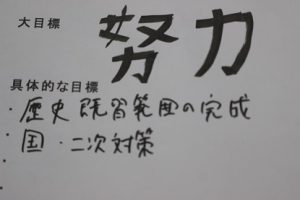 大目標
努力
具体的な目標
・歴史 既習範囲の完成
国・二次対策